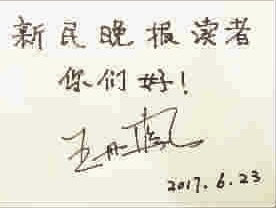 新民晚报读者
你们好！
王丹凤
2017.6.23